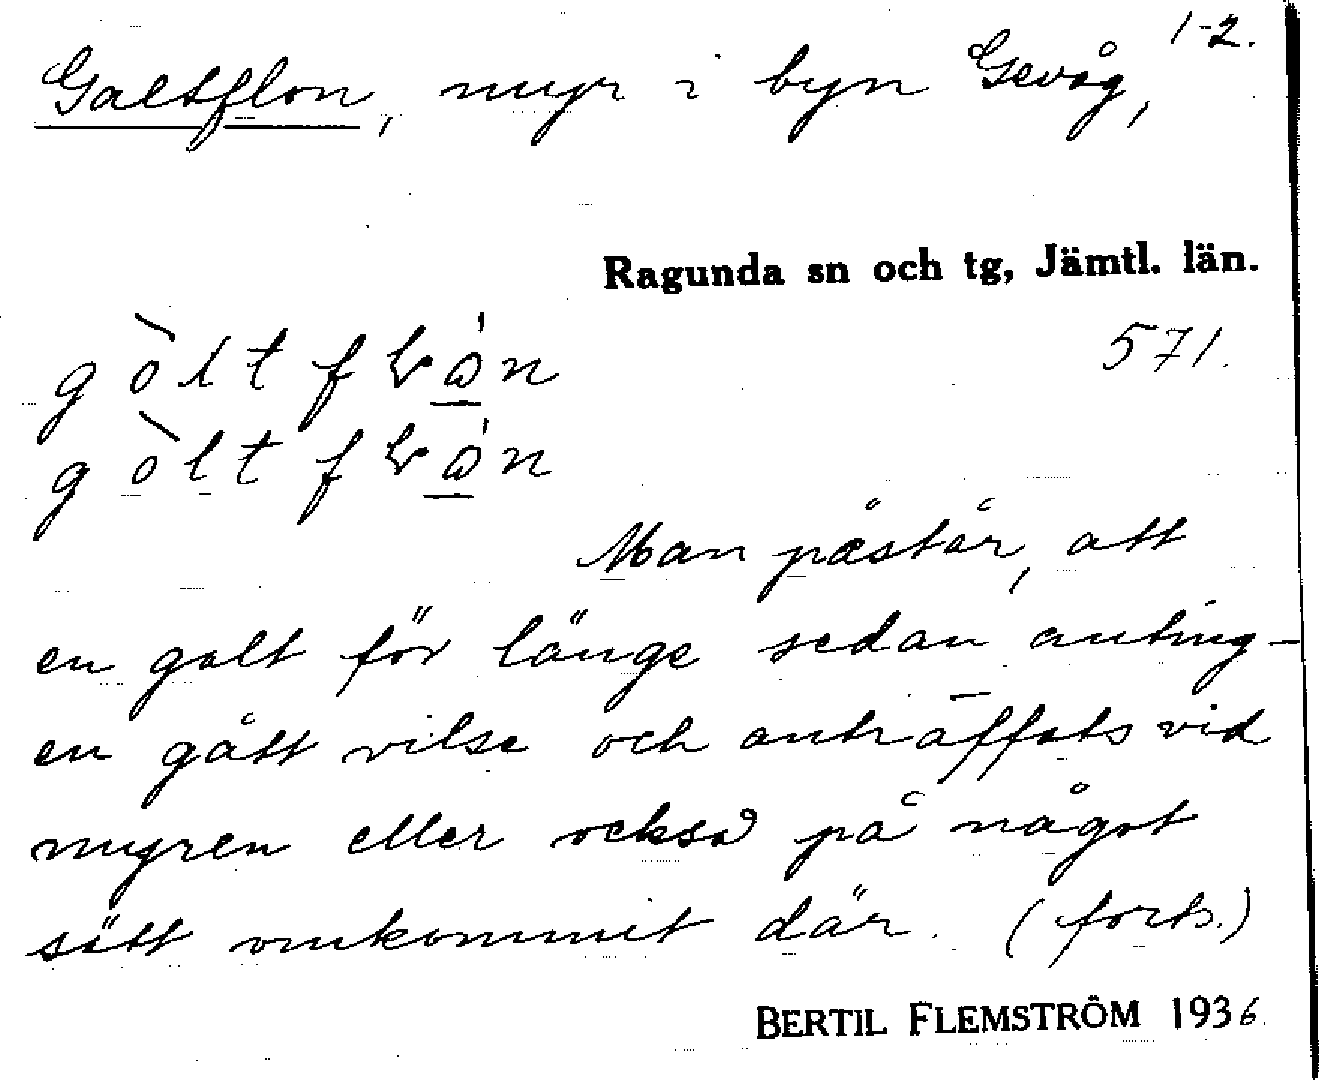 1-2.
Galtflon, myr i byn Gevåg,
Ragunda sn och tg, Jämtl. län.
571.
Man påstår, att
en galt för länge sedan anting-
en gått vilse och anträffats vid
myren eller också på något
sätt omkommit där. (forts.)
BERTIL FLEMSTRÖM 1936